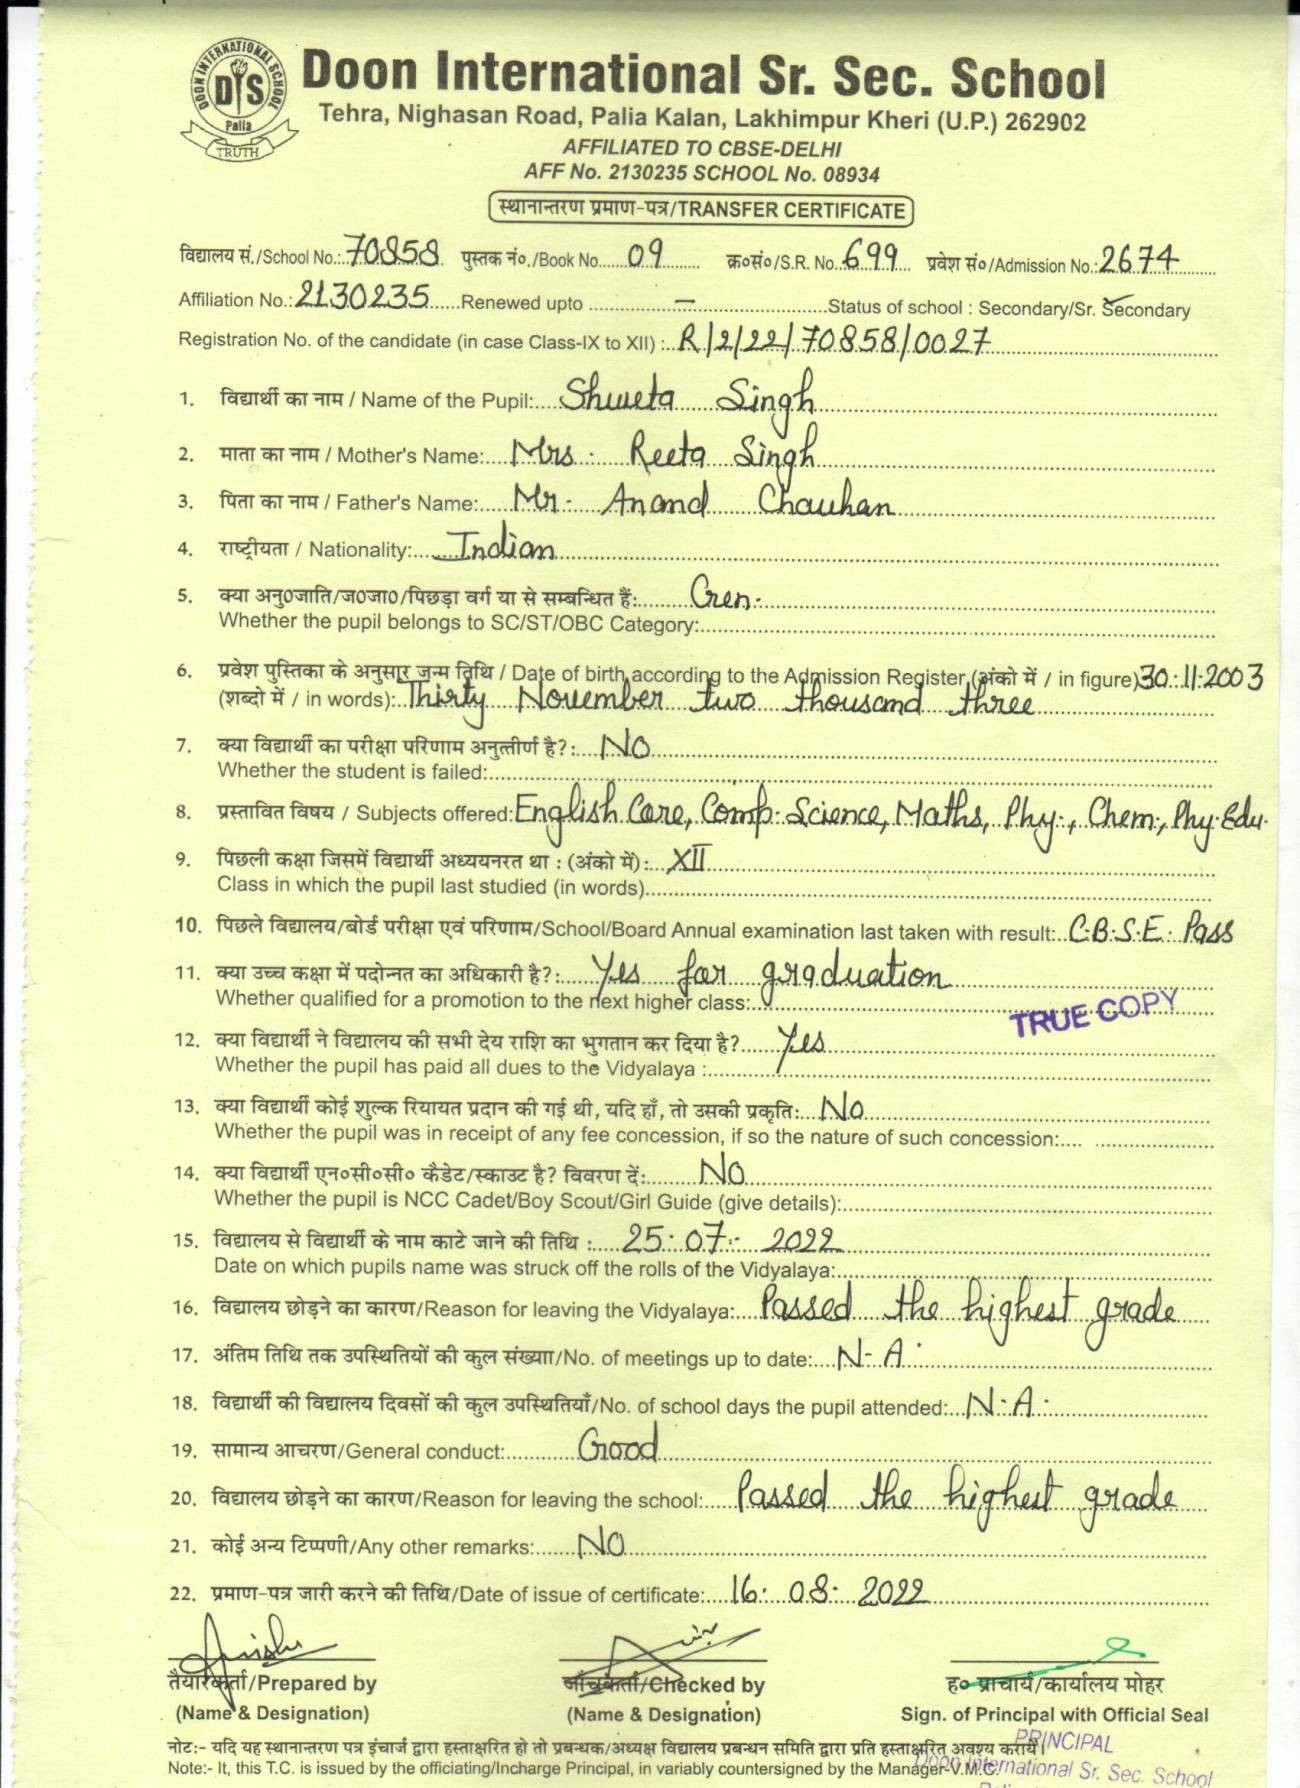 DOON INTERNATIONAL SCHOOL
DIS
Palia
TRUTH
Doon International Sr. Sec. School
Tehra, Nighasan Road, Palia Kalan, Lakhimpur Kheri (U.P.) 262902
AFFILIATED TO CBSE-DELHI
AFF No. 2130235 SCHOOL No. 08934
स्थानान्तरण प्रमाण-पत्र/TRANSFER CERTIFICATE
विद्यालय सं./School No.: 70858 पुस्तक नं०./Book No. 09 क्र०सं०/S.R. No. 699 प्रवेश सं०/Admission No.: 2674
Affiliation No.: 2130235 Renewed upto — Status of school : Secondary/Sr. Secondary
Registration No. of the candidate (in case Class-IX to XII) : R/2/22/70858/0027
1. विद्यार्थी का नाम / Name of the Pupil: Shweta Singh
2. माता का नाम / Mother's Name: Mrs. Reeta Singh
3. पिता का नाम / Father's Name: Mr. Anand Chauhan
4. राष्ट्रीयता / Nationality: Indian
5. क्या अनु०जाति/ज०जा०/पिछड़ा वर्ग या से सम्बन्धित हैं: Gen.
Whether the pupil belongs to SC/ST/OBC Category:
6. प्रवेश पुस्तिका के अनुसार जन्म तिथि / Date of birth according to the Admission Register (अंको में / in figure) 30.11.2003
(शब्दो में / in words): Thirty November two thousand three
7. क्या विद्यार्थी का परीक्षा परिणाम अनुत्तीर्ण है?: No
Whether the student is failed:
8. प्रस्तावित विषय / Subjects offered: English Core, Comp. Science, Maths, Phy., Chem., Phy. Edu.
9. पिछली कक्षा जिसमें विद्यार्थी अध्ययनरत था : (अंको में): XII
Class in which the pupil last studied (in words)
10. पिछले विद्यालय/बोर्ड परीक्षा एवं परिणाम/School/Board Annual examination last taken with result: C.B.S.E. Pass
11. क्या उच्च कक्षा में पदोन्नत का अधिकारी है?: Yes for graduation
Whether qualified for a promotion to the next higher class:
TRUE COPY
12. क्या विद्यार्थी ने विद्यालय की सभी देय राशि का भुगतान कर दिया है? Yes
Whether the pupil has paid all dues to the Vidyalaya :
13. क्या विद्यार्थी कोई शुल्क रियायत प्रदान की गई थी, यदि हाँ, तो उसकी प्रकृति: No
Whether the pupil was in receipt of any fee concession, if so the nature of such concession:
14. क्या विद्यार्थी एन०सी०सी० कैडेट/स्काउट है? विवरण दें: No
Whether the pupil is NCC Cadet/Boy Scout/Girl Guide (give details):
15. विद्यालय से विद्यार्थी के नाम काटे जाने की तिथि : 25.07.2022
Date on which pupils name was struck off the rolls of the Vidyalaya:
16. विद्यालय छोड़ने का कारण/Reason for leaving the Vidyalaya: Passed the highest grade
17. अंतिम तिथि तक उपस्थितियों की कुल संख्या/No. of meetings up to date: N-A.
18. विद्यार्थी की विद्यालय दिवसों की कुल उपस्थितियाँ/No. of school days the pupil attended: N.A.
19. सामान्य आचरण/General conduct: Good
20. विद्यालय छोड़ने का कारण/Reason for leaving the school: Passed the highest grade
21. कोई अन्य टिप्पणी/Any other remarks: NO
22. प्रमाण-पत्र जारी करने की तिथि/Date of issue of certificate: 16.08.2022
तैयारकर्ता/Prepared by जाँचकर्ता/Checked by ह० प्राचार्य/कार्यालय मोहर
(Name & Designation) (Name & Designation) Sign. of Principal with Official Seal
नोट:- यदि यह स्थानान्तरण पत्र इंचार्ज द्वारा हस्ताक्षरित हो तो प्रबन्धक/अध्यक्ष विद्यालय प्रबन्धन समिति द्वारा प्रति हस्ताक्षरित अवश्य करायें।
PRINCIPAL
Note:- It, this T.C. is issued by the officiating/Incharge Principal, in variably countersigned by the Manager-V.M.C.
Doon International Sr. Sec. School